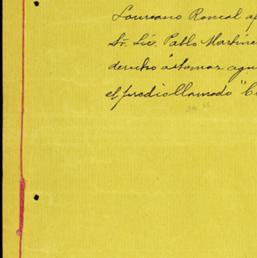 Laureano Roncal ap
Sr. Lic. Pablo Martíne
derecho á tomar agu
el predio llamado "C